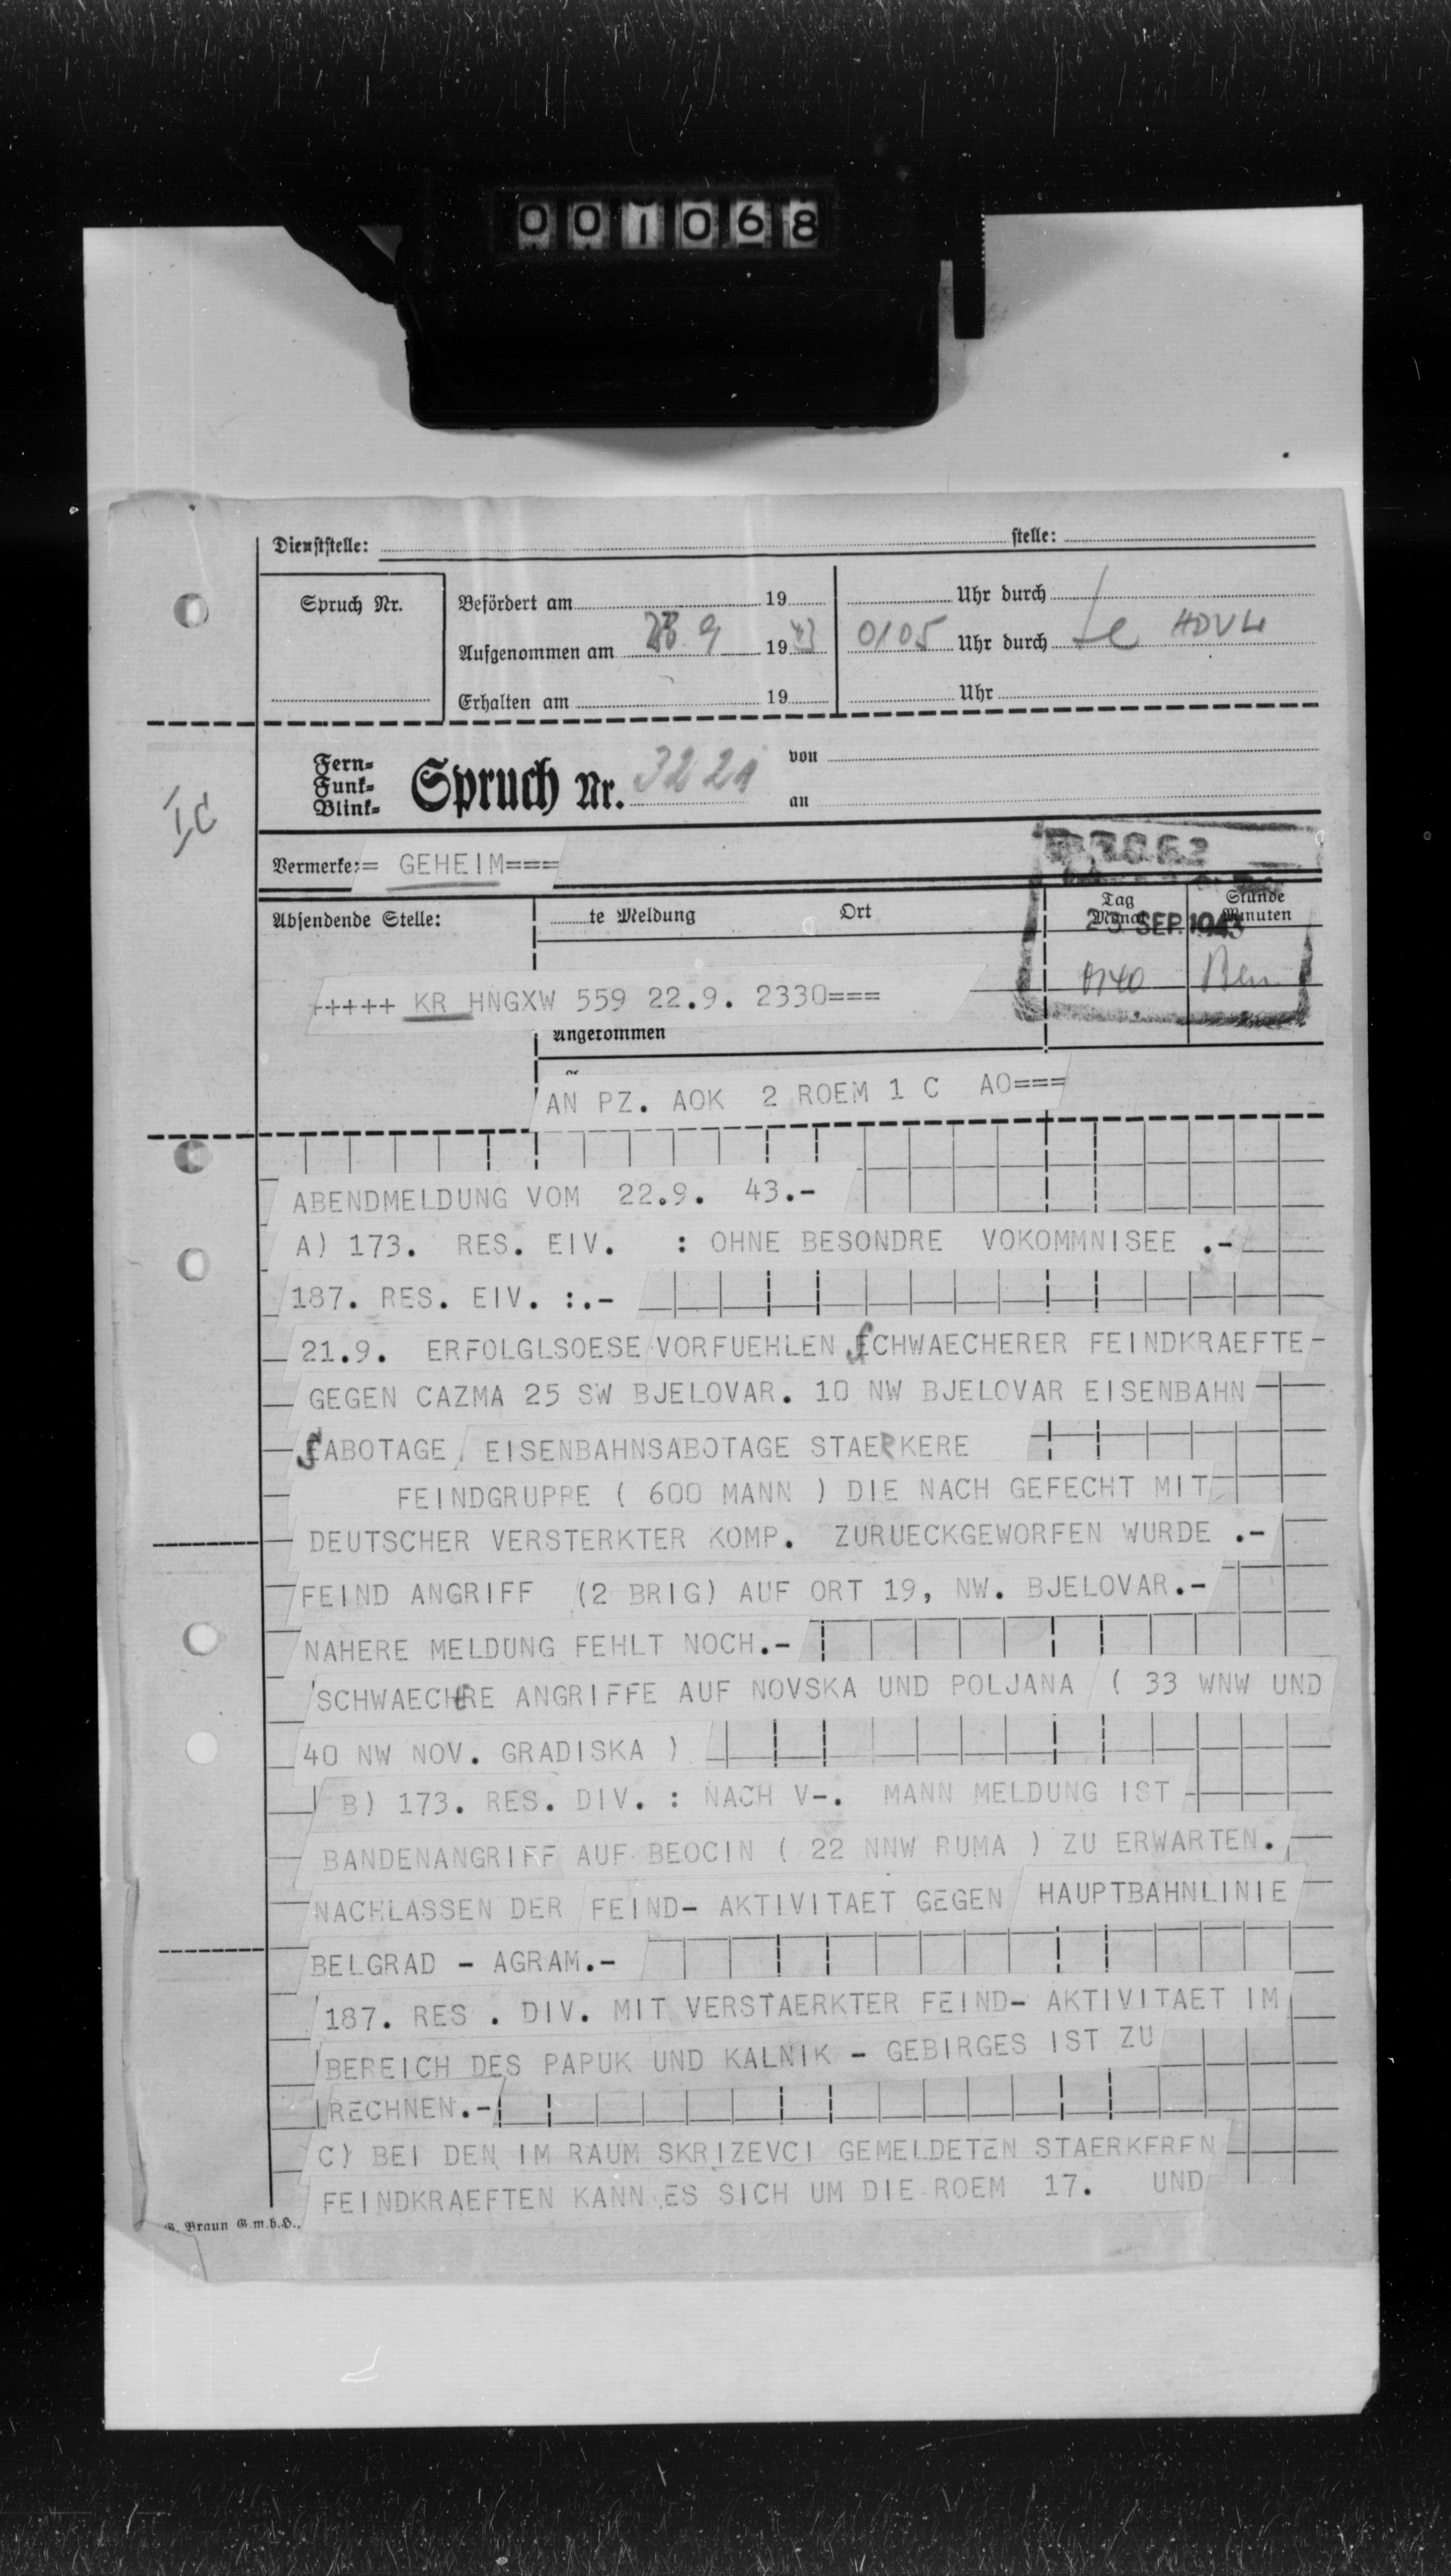 001068
Dienststelle: stelle:
Spruch Nr.
Befördert am 19 Uhr durch
Aufgenommen am 23 9 1943 0105 Uhr durch
Erhalten am 19 Uhr
Ic
Fern-
Funk-
Blink-
Spruch Nr. 3221
von
an
Vermerke:= GEHEIM===
Absendende Stelle: te Meldung Ort Tag Monat Stunde Minuten
23. SEP. 1943
0140
+++++ KR HNGXW 559 22.9. 2330===
Angekommen
AN PZ. AOK 2 ROEM 1 C AO===
ABENDMELDUNG VOM 22.9. 43.-
A) 173. RES. EIV. : OHNE BESONDRE VOKOMMNISEE .-
187. RES. EIV. :.-
21.9. ERFOLGLSOESE VORFUEHLEN SCHWAECHERER FEINDKRAEFTE
GEGEN CAZMA 25 SW BJELOVAR. 10 NW BJELOVAR EISENBAHN
SABOTAGE, EISENBAHNSABOTAGE STAERKERE
FEINDGRUPPE ( 600 MANN ) DIE NACH GEFECHT MIT
DEUTSCHER VERSTERKTER KOMP. ZURUECKGEWORFEN WURDE .-
FEIND ANGRIFF (2 BRIG) AUF ORT 19, NW. BJELOVAR.-
NAHERE MELDUNG FEHLT NOCH.-
SCHWAECHRE ANGRIFFE AUF NOVSKA UND POLJANA ( 33 WNW UND
40 NW NOV. GRADISKA )
B) 173. RES. DIV. : NACH V-. MANN MELDUNG IST
BANDENANGRIFF AUF BEOCIN ( 22 NNW RUMA ) ZU ERWARTEN.
NACHLASSEN DER FEIND- AKTIVITAET GEGEN HAUPTBAHNLINIE
BELGRAD - AGRAM.-
187. RES . DIV. MIT VERSTAERKTER FEIND- AKTIVITAET IM
BEREICH DES PAPUK UND KALNIK - GEBIRGES IST ZU
RECHNEN.-
C) BEI DEN IM RAUM SKRIZEVCI GEMELDETEN STAERKEREN
FEINDKRAEFTEN KANN ES SICH UM DIE ROEM 17. UND
Braun G.m.b.H.,